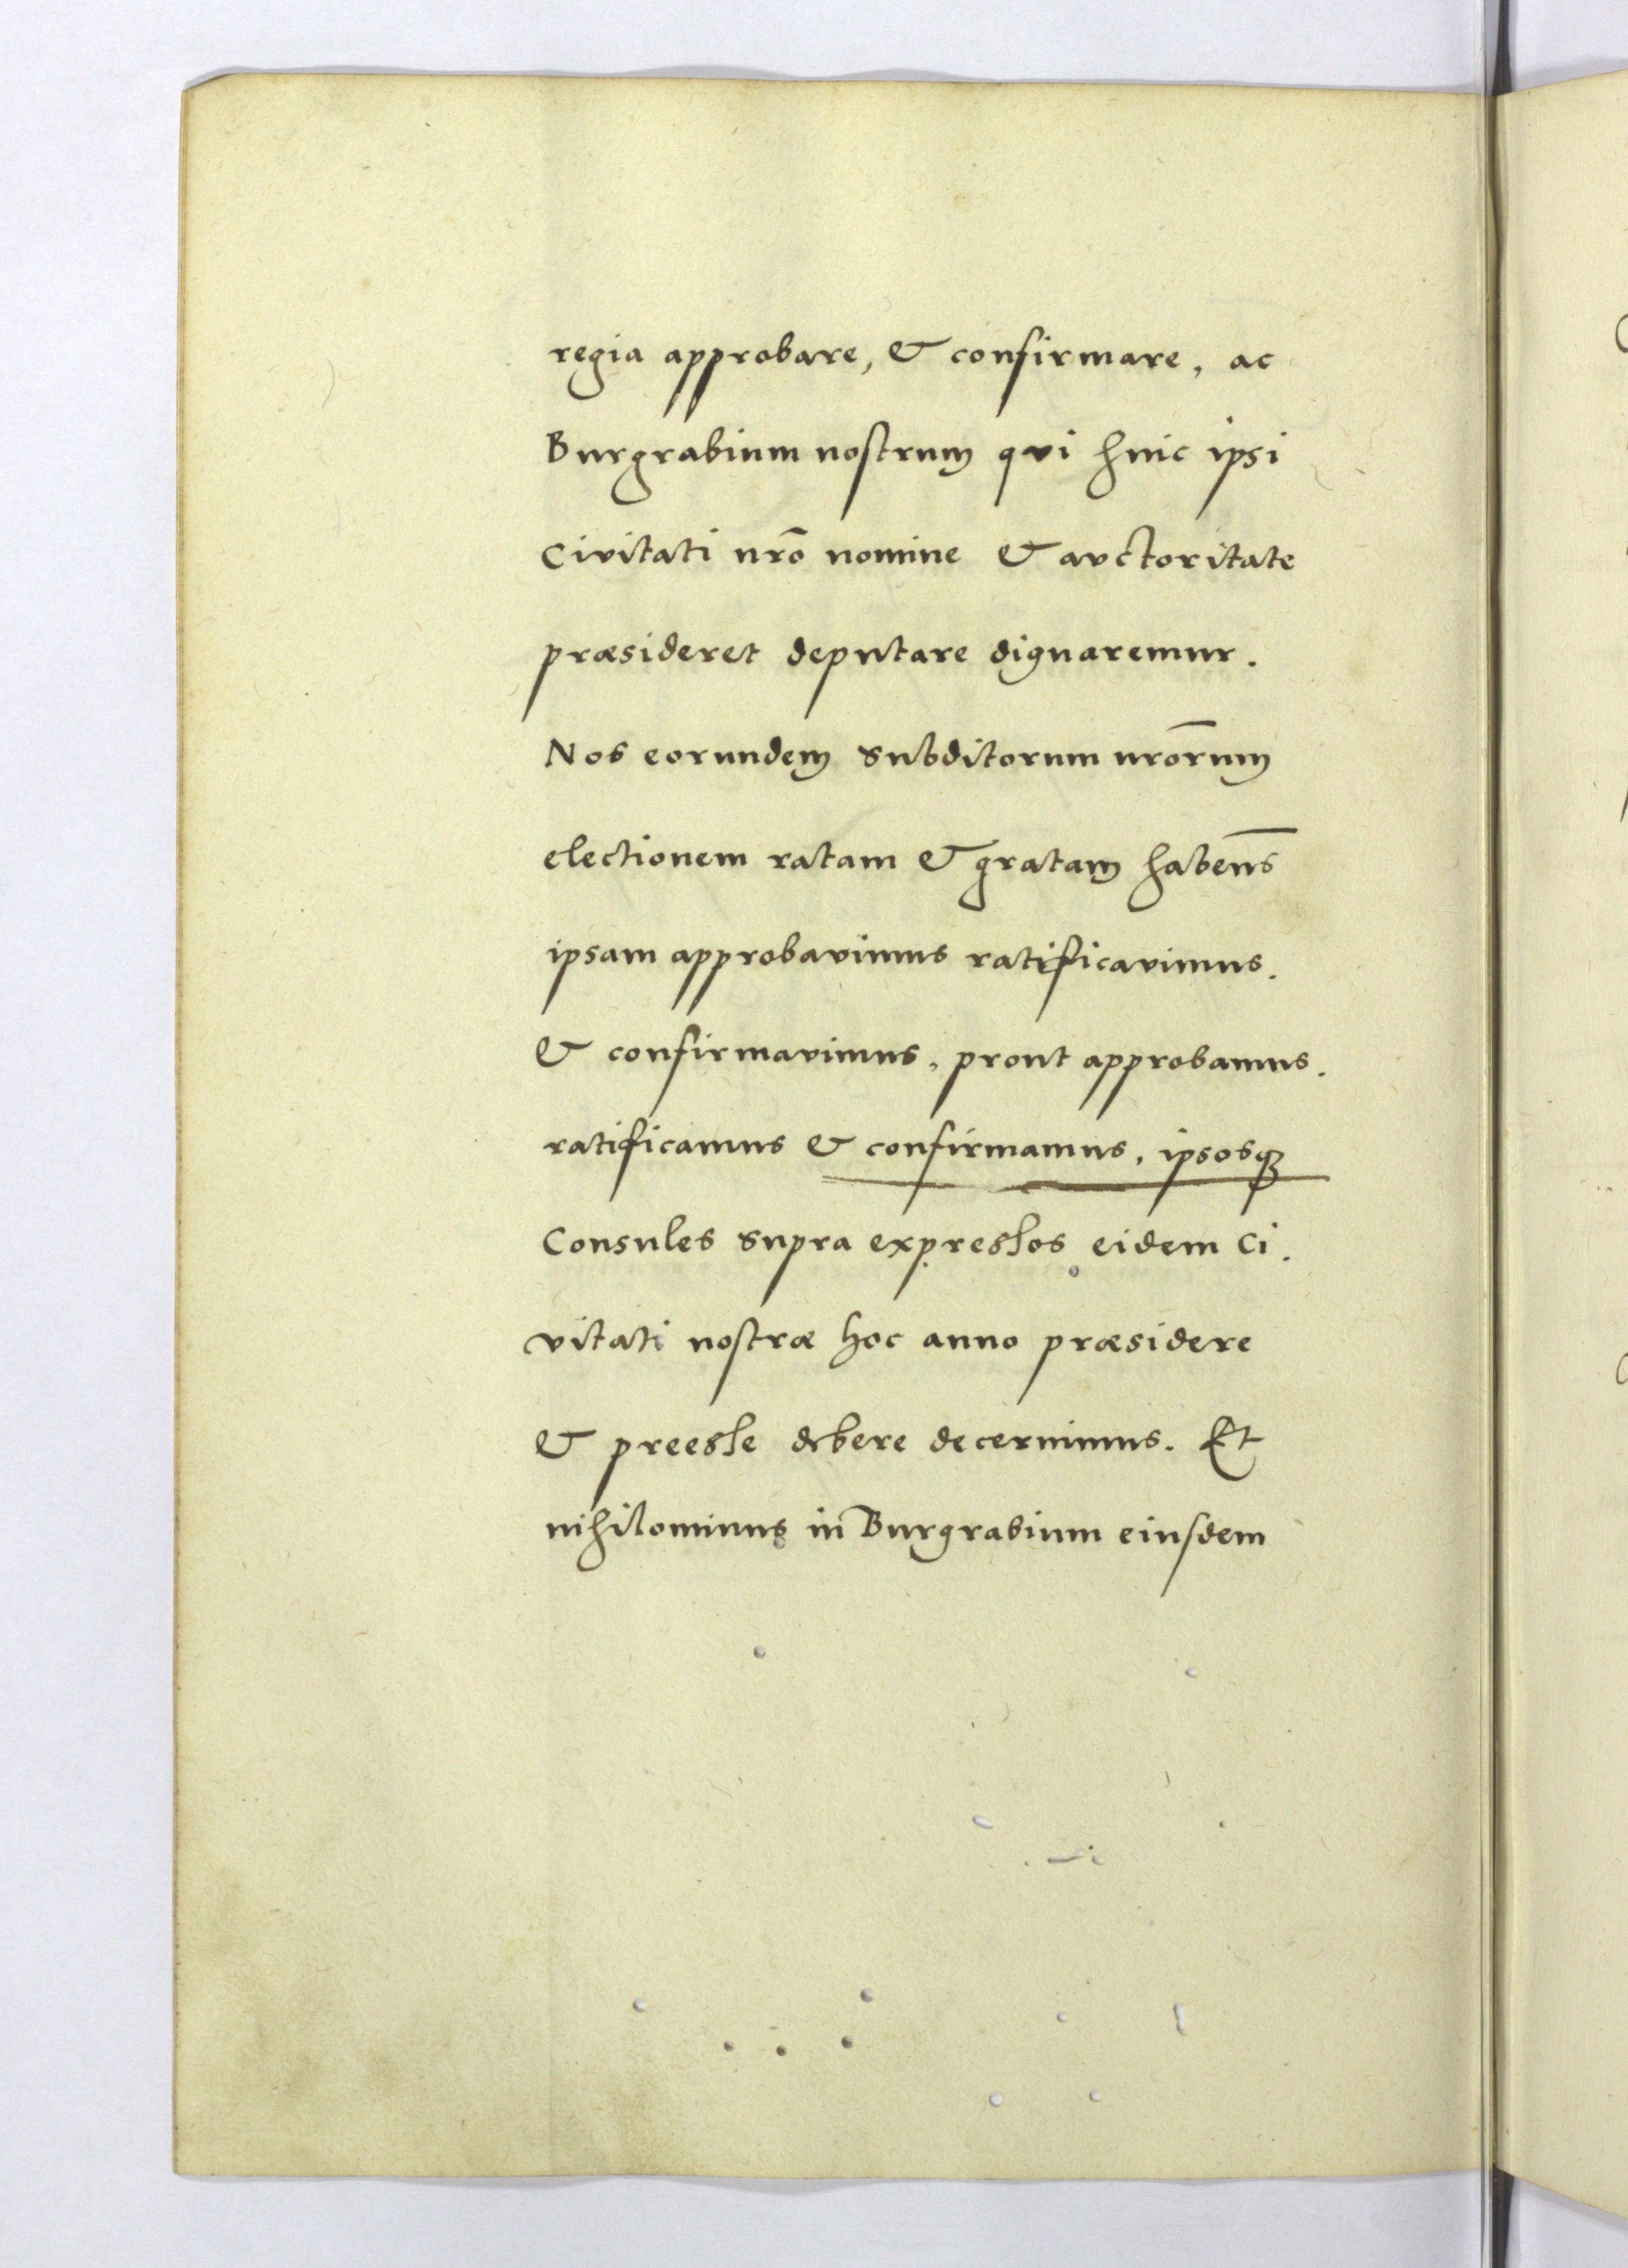 regia approbare, & confirmare, ac
Burgrabium nostrum qui huic ipsi
Civitati nrō nomine & auctoritate
præsideret deputare dignaremur.
Nos eorundem subditorum nrōrum
electionem ratam & gratam habēns
ipsam approbavimus ratificavimus.
& confirmavimus, prout approbamus.
ratificamus & confirmamus, ipsosq3
Consules supra expressos eidem Ci.
vitati nostræ hoc anno præsidere
& preesse debere decernimus. Et
nihilominus in Burgrabium eiusdem